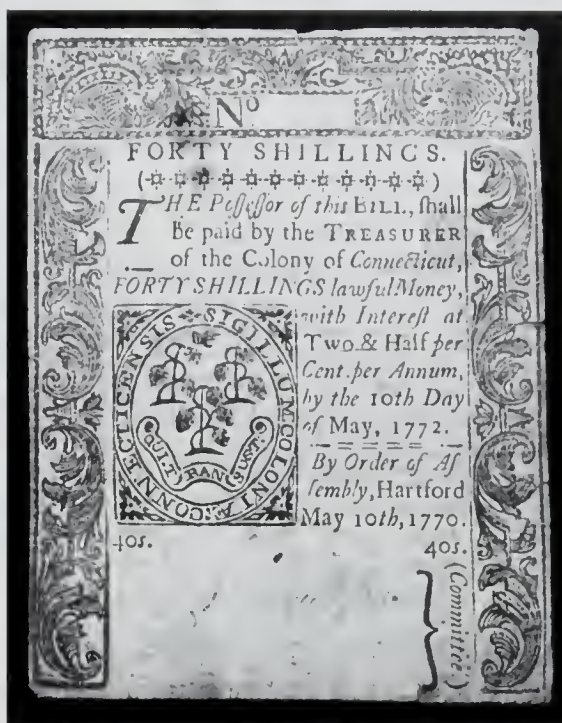 Nº
FORTY SHILLINGS.
THE Poſſeſſor of this BILL, ſhall
be paid by the TREASURER
of the Colony of Connecticut,
FORTY SHILLINGS lawful Money,
with Intereſt at
Two & Half per
Cent. per Annum,
by the 10th Day
of May, 1772.
By Order of Aſ
ſembly, Hartford
May 10th, 1770.
SIGILLUM COLONIÆ CONNECTICENSIS
QUI TRAN SUST
40s.
40s.
(Committee)